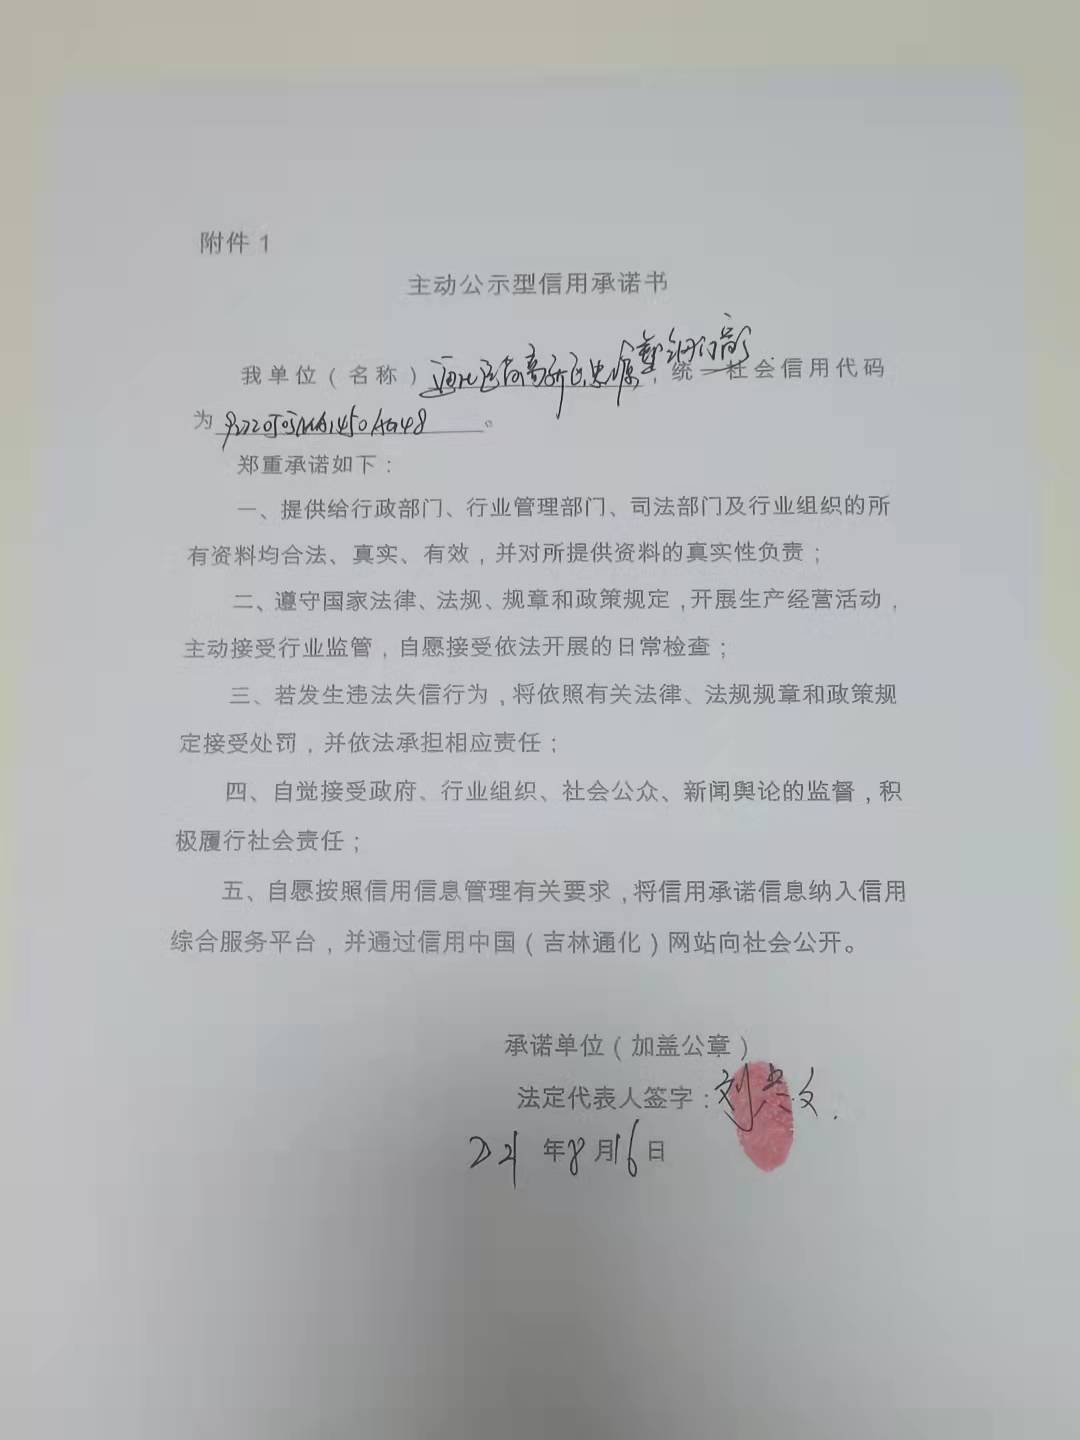 附件 1
主动公示型信用承诺书
我单位（名称）通化医药高新区忠源塑钢门窗，统一社会信用代码
为。
郑重承诺如下：
一、提供给行政部门、行业管理部门、司法部门及行业组织的所
有资料均合法、真实、有效，并对所提供资料的真实性负责；
二、遵守国家法律、法规、规章和政策规定，开展生产经营活动，
主动接受行业监管，自愿接受依法开展的日常检查；
三、若发生违法失信行为，将依照有关法律、法规规章和政策规
定接受处罚，并依法承担相应责任；
四、自觉接受政府、行业组织、社会公众、新闻舆论的监督，积
极履行社会责任；
五、自愿按照信用信息管理有关要求，将信用承诺信息纳入信用
综合服务平台，并通过信用中国（吉林通化）网站向社会公开。
承诺单位（加盖公章）
法定代表人签字：刘兴文
21 年 8 月 16 日